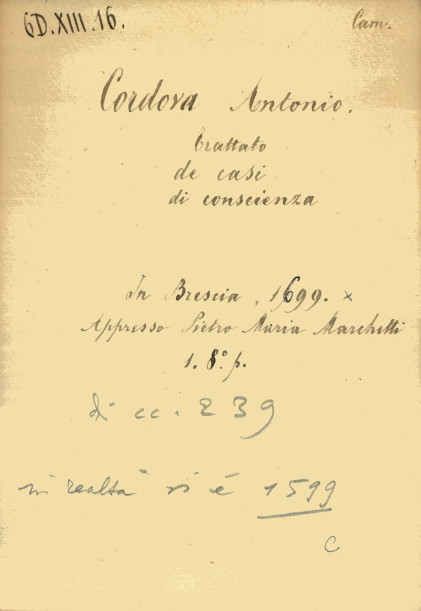 6D.XIII.16.
Cam.
Cordova Antonio.
Trattato
de casi
di conscienza
In Brescia, 1699. x
Appresso Pietro Maria Marchetti
1. 8.° p.
di cc. 239
in realtà vi è 1599
C